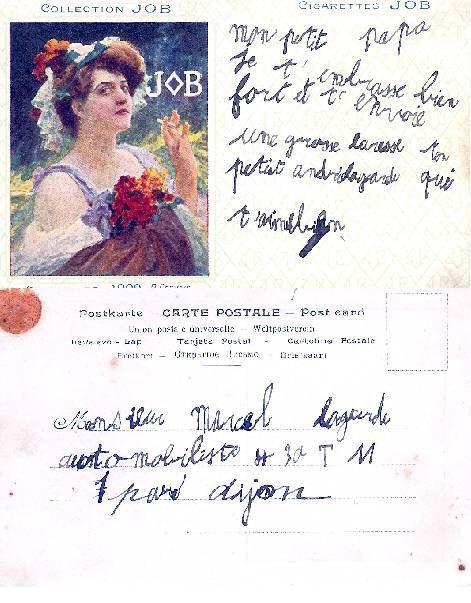 COLLECTION JOB
CIGARETTES JOB
JOB
mon petit papa
Je t'embrasse bien
fort et t'envoie
une grosse caresse ton
petit andré lagarde qui
t'aime bien
Postkarte CARTE POSTALE — Post card
Union postale universelle — Weltpostverein
Levelezö-Lap Tarjeta Postal - Cartolina Postale
Briefkaart
Monsieur Marcel lagarde
automobiliste 30 T 11
parc dijon